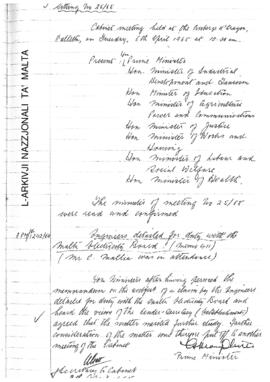 Meeting No 26/65
Cabinet meeting held at the Auberge d'Aragon,
Valletta, on Tuesday, 6th April 1965 at 10.00 am.
Present: Hon Prime Minister
Hon. Minister of Industrial
Development and Tourism
Hon Minister of Education
Hon. Minister of Agriculture
Power and Communications
Hon. Minister of Justice
Hon. Minister of Works and
Housing
Hon Minister of Labour and
Social Welfare
Hon. Minister of Health.
The minutes of meeting No 25/65
were read and confirmed
Engineers detailed for duty with the
Malta Electricity Board
(Mr C. Mallia was in attendance)
Hon Ministers after having perused the
memorandum on the subject of a claim by the Engineers
detailed for duty with the Malta Electricity Board and
heard the views of the Under-Secretary (Establishments)
agreed that the matter merited further study. Further
consideration of the matter was therefore put off to another
meeting of the Cabinet
Prime Minister
Secretary to Cabinet
L-ARKIVJI NAZZJONALI TA' MALTA